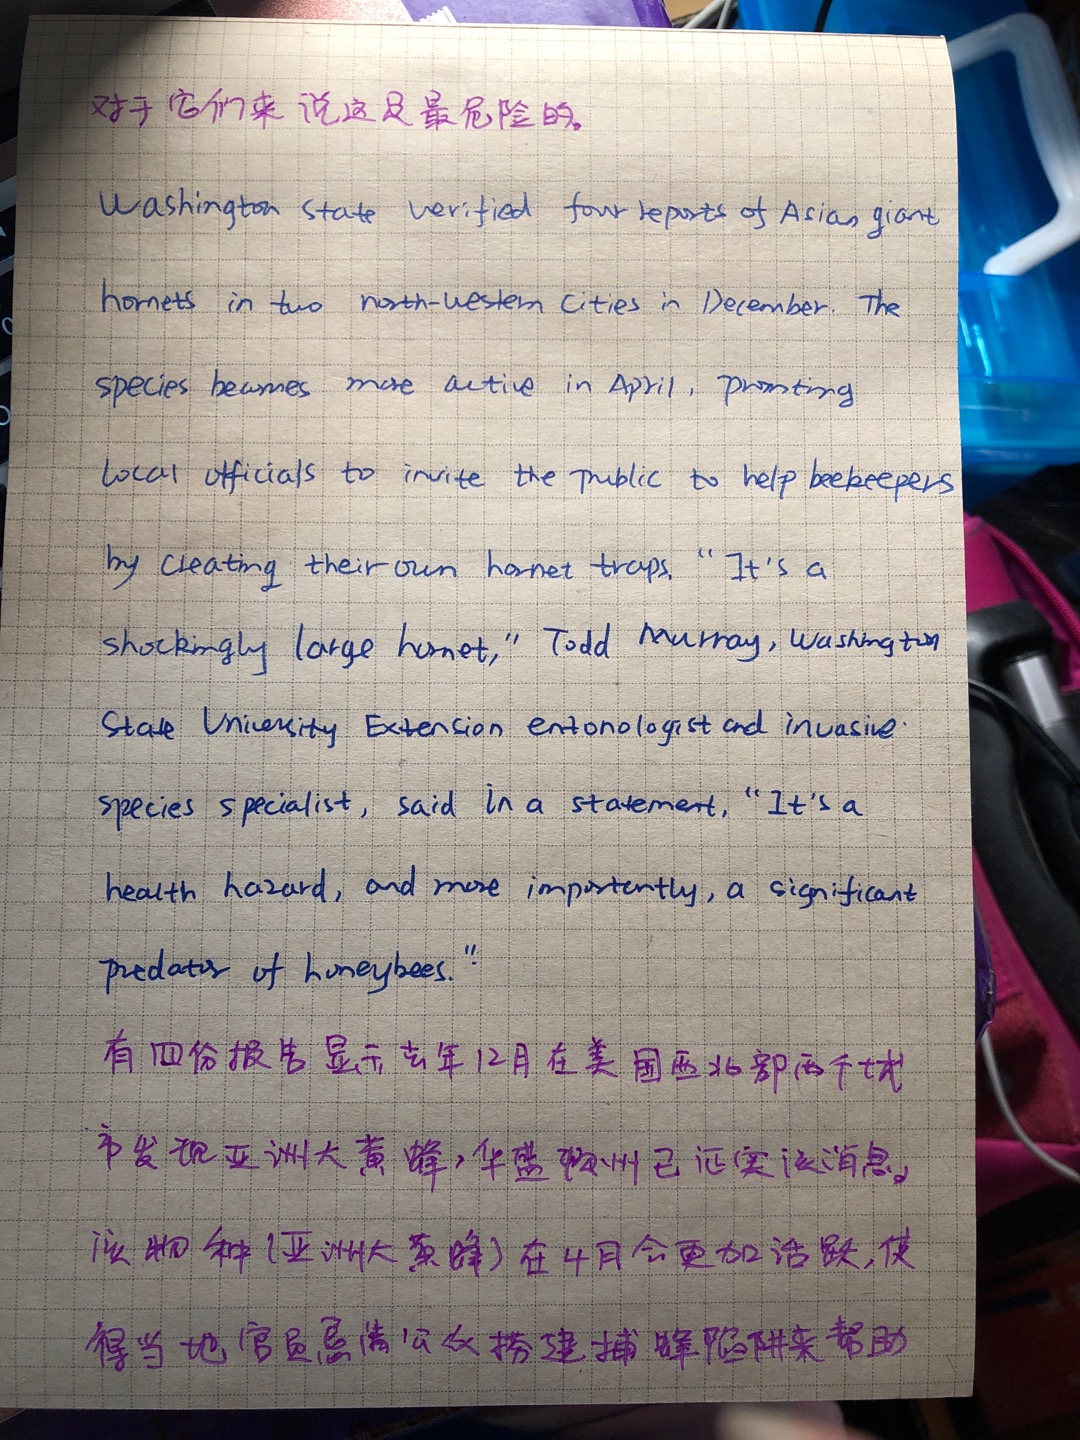 对于它们来说这是最危险的。
Washington State verified four reports of Asian giant
hornets in two north-western cities in December. The
species becomes more active in April, promting
local officials to invite the public to help beekeepers
by creating their own hornet traps. "It's a
shockingly large hornet," Todd Murray, Washington
State University Extension entonologist and invasive
species specialist, said in a statement, "It's a
health hazard, and more importently, a significant
predator of honeybees."
有四份报告显示去年12月在美国西北部两个城
市发现亚洲大黄蜂,华盛顿州已证实该消息。
该物种(亚洲大黄蜂)在4月会更加活跃,使
得当地官员恳请公众搭建捕蜂陷阱来帮助